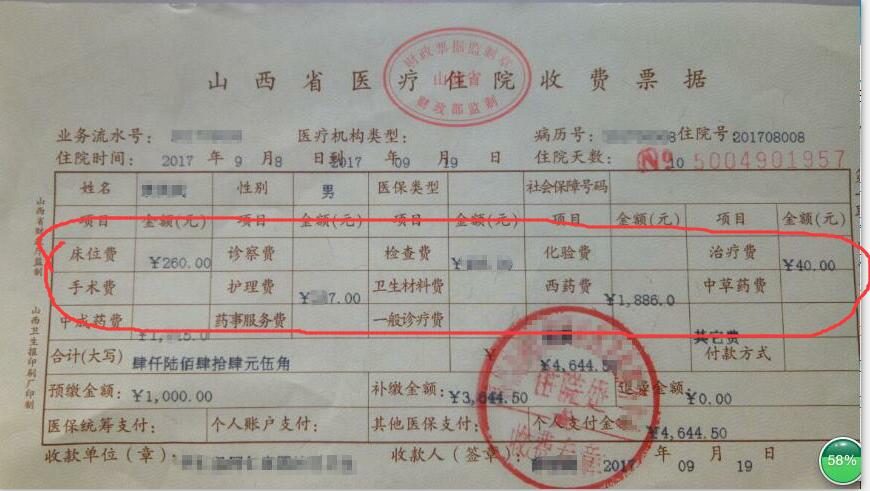 山西省医疗住院收费票据
财政票据监制章
山西省
财政部监制
业务流水号： 医疗机构类型： 病历号： 8 住院号：201708008
住院时间：2017 年 9 月 8 日到 2017 年 09 月 19 日 住院天数： 10 No 5004901957
姓名 性别 男 医保类型 社会保障号码
项目 金额(元) 项目 金额(元) 项目 金额(元) 项目 金额(元) 项目 金额(元)
床位费 ¥260.00 诊察费 检查费 ¥ 化验费 治疗费 ¥40.00
手术费 护理费 ¥ 7.00 卫生材料费 西药费 ¥1,886.0 中草药费
中成药费 药事服务费 一般诊疗费 其它费
合计(大写) 肆仟陆佰肆拾肆元伍角 ¥ ¥4,644.50 付款方式
预缴金额：¥1,000.00 补缴金额：¥3,644.50 退费金额：¥0.00
医保统筹支付： 个人账户支付： 其他医保支付： 个人支付金额 ¥4,644.50
收款单位（章）： 收款人（签章）： 2017 年 09 月 19 日
住院处
收费专章
山西省财政厅监制
山西卫生报印刷厂印制
58%